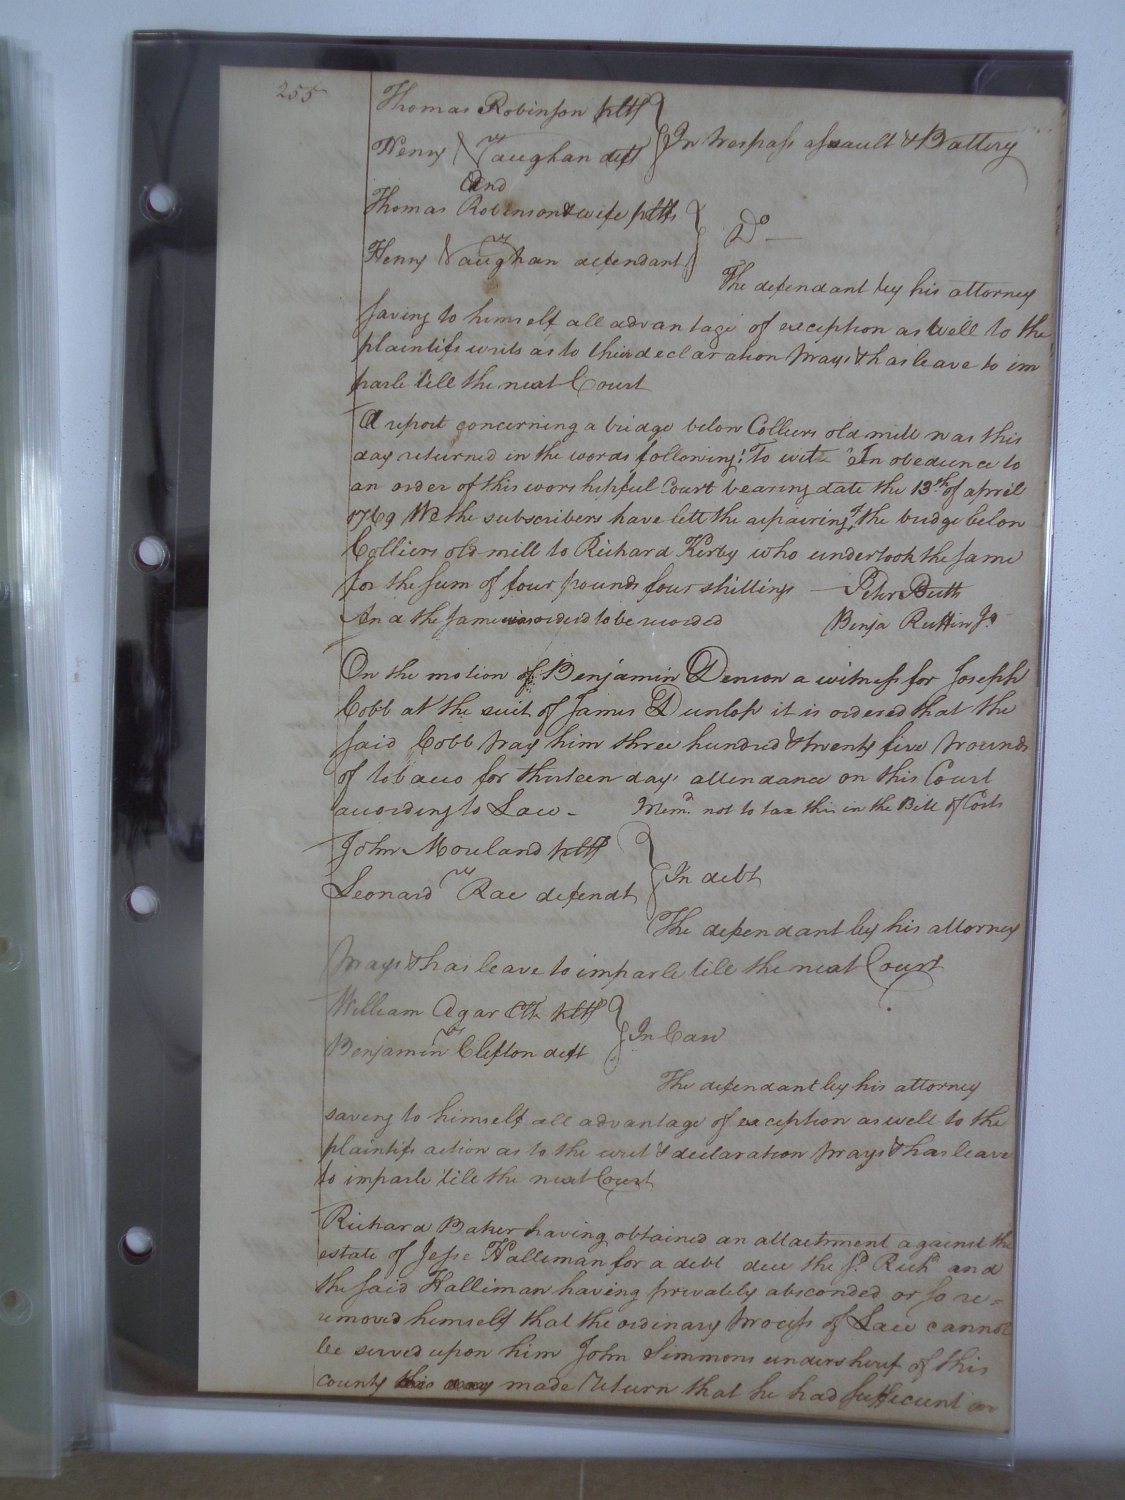 255
Thomas Robinson pltff
vs
Henry Vaughan deft
} In trespass assault & Battery
And
Thomas Robinson & wife pltffs
vs
Henry Vaughan defendant
} Do —
The defendant by his attorney
saving to himself all advantage of exception as well to the
plaintifs writs as to their declaration prays & has leave to im
parle till the next Court
A report concerning a bridge below Colliers old mill was this
day returned in the words following: To wit "In obedience to
an order of this worshipful Court bearing date the 13th of april
1769 We the subscribers have lett the repairing of the bridge below
Colliers old mill to Richard Kirby who undertook the same
for the sum of four pounds four shillings — Petr Butts
And the same was orderd to be recorded Benja Ruffin Jr
On the motion of Benjamin Denson a witness for Joseph
Cobb at the suit of James Dunlop it is ordered that the
said Cobb pay him three hundred & twenty five pounds
of tobacco for thirteen days attendance on this Court
according to Law - Memd. not to tax this in the Bill of Costs
John Moreland pltff
vs
Leonard Rae defendt
} In debt
The defendant by his attorney
prays & has leave to imparle till the next Court
William Agar pltff
vs
Benjamin Clifton deft
} In Case
The defendant by his attorney
saving to himself all advantage of exception as well to the
plaintifs action as to the writ & declaration prays & has leave
to imparle till the next Court
Richard Baker having obtained an attachment against the
estate of Jesse Halliman for a debt due the sd. Richd and
the said Halliman having privately absconded or so re=
=moved himself that the ordinary process of Law cannot
be served upon him John Simmons undersherif of this
county made return that he had sufficient in